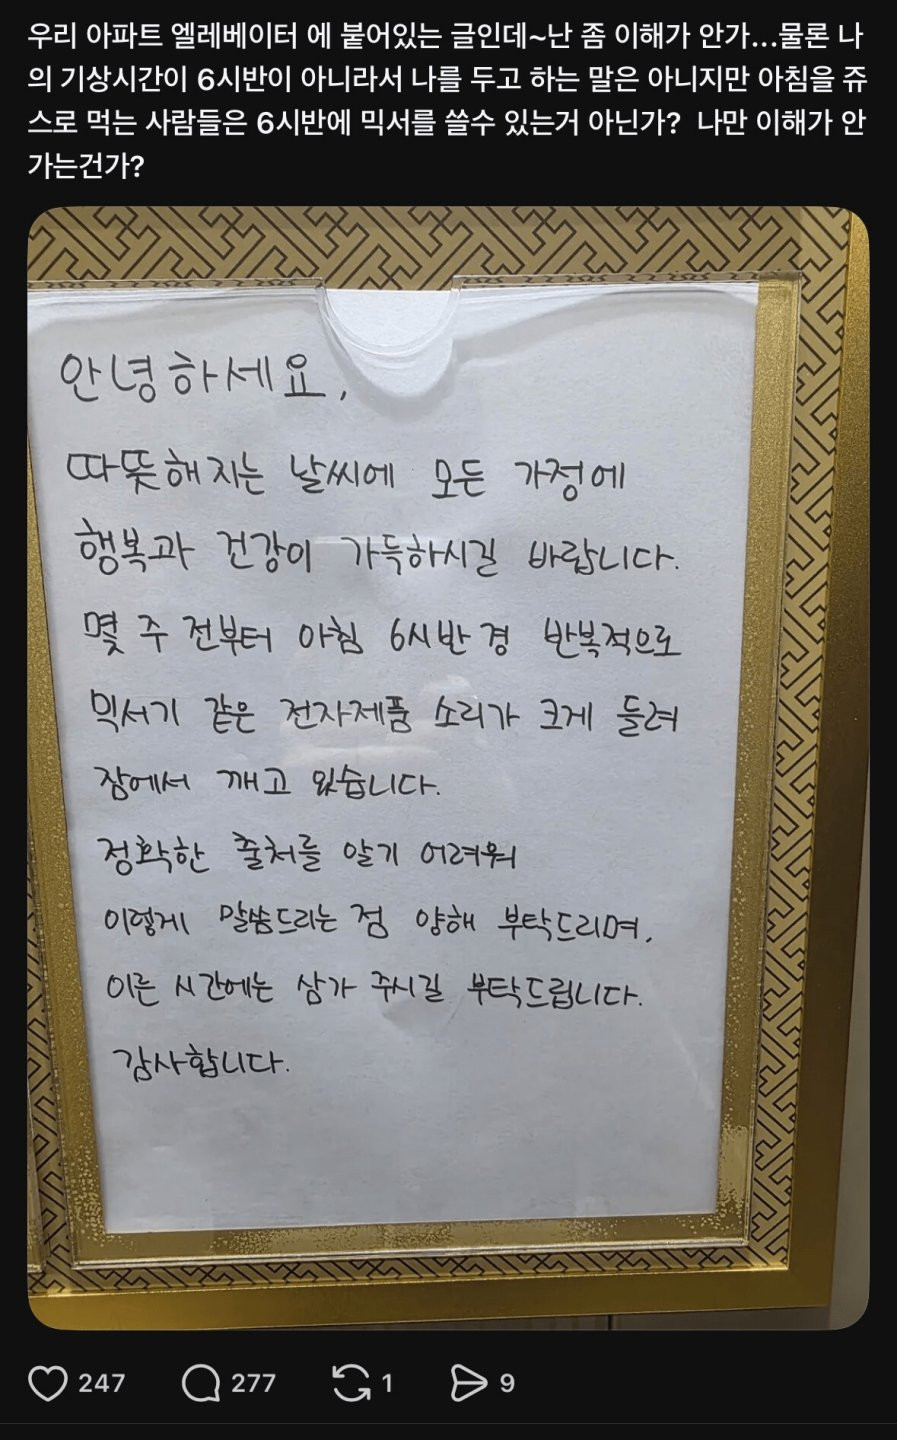 우리 아파트 엘레베이터 에 붙어있는 글인데~난 좀 이해가 안가...물론 나
의 기상시간이 6시반이 아니라서 나를 두고 하는 말은 아니지만 아침을 쥬
스로 먹는 사람들은 6시반에 믹서를 쓸수 있는거 아닌가?  나만 이해가 안
가는건가?
안녕하세요,
따뜻해지는 날씨에 모든 가정에
행복과 건강이 가득하시길 바랍니다.
몇 주 전부터 아침 6시반 경 반복적으로
믹서기 같은 전자제품 소리가 크게 들려
잠에서 깨고 있습니다.
정확한 출처를 알기 어려워
이렇게 말씀드리는 점 양해 부탁드리며,
이른 시간에는 삼가 주시길 부탁드립니다.
감사합니다.
247 277 1 9